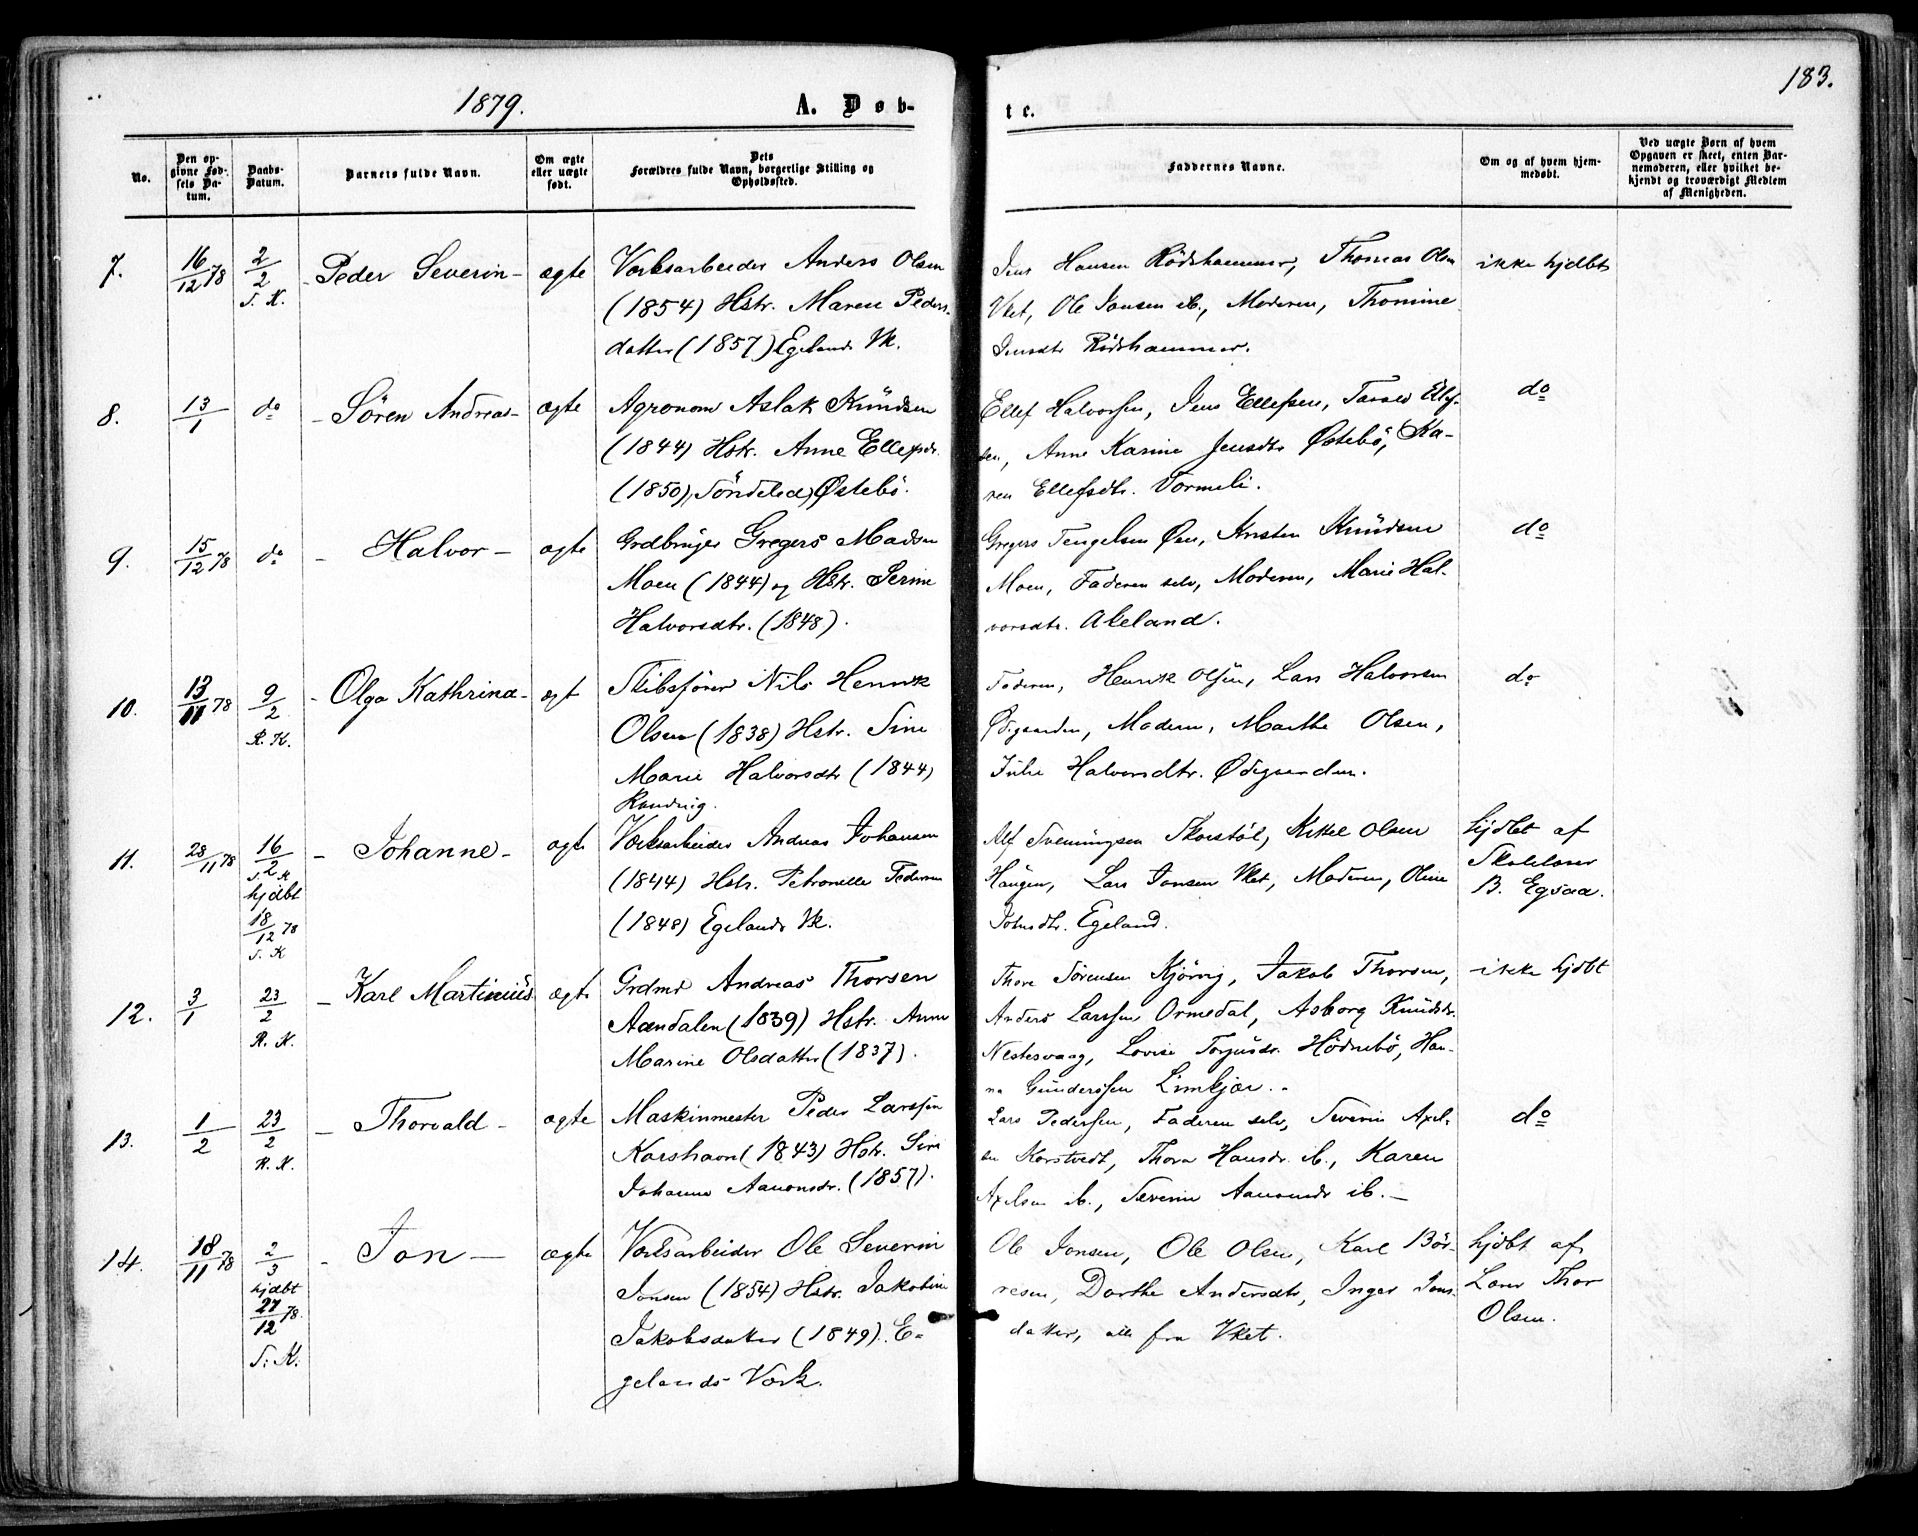 1879.
A. Døb-
No.
Den op-
givne Fød-
sels Da-
tum.
Daabs-
Datum.
Barnets fulde Navn.
Om ægte
eller uægte
født.
Dets
Forældres fulde Navn, borgerlige Stilling og
Opholdssted.
7.
16/12 78
2/2
S. K.
- Peder Severin -
ægte
Værksarbeider Anders Olsen
(1854) Hstr. Maren Peders-
datter (1857) Egelands Vk.
8.
13/1
do
- Sören Andreas -
ægte
Agronom Aslak Knudsen
(1844) Hstr. Anne Ellefsdr.
(1850), Söndeled, Østebö.
9.
15/12 78
do
- Halvor -
ægte
Grdbruger Gregers Madsen
Moen (1844) og Hstr. Serine
Halvorsdtr. (1848).
10.
13/11 78
9/2
R. K.
- Olga Kathrina -
ægt
Skibsfører Nils Henrik
Olsen (1838) Hstr. Sine
Marie Halvorsdtr (1844)
Randvig.
11.
28/11 78
16/2
S. K
hjdbt
18/12 78
S. K
- Johanne -
ægte
Værksarbeider Andreas Johansen
(1844) Hstr. Petronelle Pedersen
(1848) Egelands Vk.
12.
3/1
23/2
R. K.
- Karl Martinius
ægte
Grdmd Andreas Thorsen
Aandalen (1839) Hstr. Anne
Marine Olsdatter (1837).
13.
1/2
23/2
R. K.
- Thorvald -
ægte
Maskinmester Peder Larssen
Karshavn (1843) Hstr. Sine
Johanne Aanonsdr. (1857).
14.
18/11 78
2/3
hjdbt
27/12 78.
S. K.
- Jon -
ægte
Værksarbeider Ole Severin
Jonsen (1854) Hstr. Jakobine
Jakobsdatter (1849). E-
gelands Værk.
183.
te.
Faddernes Navne.
Om og af hvem hjem-
medøbt.
Ved uægte Børn af hvem
Opgaven er skeet, enten Bar-
nemoderen, eller hvilket be-
kjendt og troværdigt Medlem
af Menigheden.
Jens Hansen Rödshammer, Thomas Olsen
Vket, Ole Jonsen ib., Moderen, Thomine
Jensdtr Rödshammer.
ikke hjdbt
Ellef Halvorsen, Jens Ellefsen,
sen, Anne Karine Jensdtr Østebö, Ka-
ren Ellefsdtr. Vormeli.
do
Gregers Tengelsen Øen, Knudsen
Moen, Faderen selv, Moderen, Marie Hal-
vorsdtr. Akeland.
do
Faderen, Henrik Olsen, Lars Halvorsen
Ødegaarden, Moderen, Marthe Olsen,
Julie Halvorsdtr. Ødegaarden.
do
Alf Svenningsen Skorstöl, Kittel Olsen
Haugen, Lars Jonsen Vket, Moderen, Oline
Johsdtr. Egeland.
hjdbt af
Skolelærer
B. Egsaa.
Thore Sörensen Kjörvig, Jakob Thorsen,
Anders Larssen Ormedal, Asborg Knudsdr.
Nestesvaag, Lovise Torjusdr. Hödnebö, Han-
na Gunderssen Limkjær..
ikke hjdbt
Lars Pederssen, Faderen selv, Severin Axel-
sen Korstvedt, Thora Hansdr. ib., Karen
Axelsen ib., Severine Aanonsdr ib. -
do
Ole Jonsen, Ole Olsen, Karl Bör-
resen, Dorthe Andersdtr, Inger Jons-
datter, alle fra Vket.
hjdbt af
Lærer Thor
Olsen.